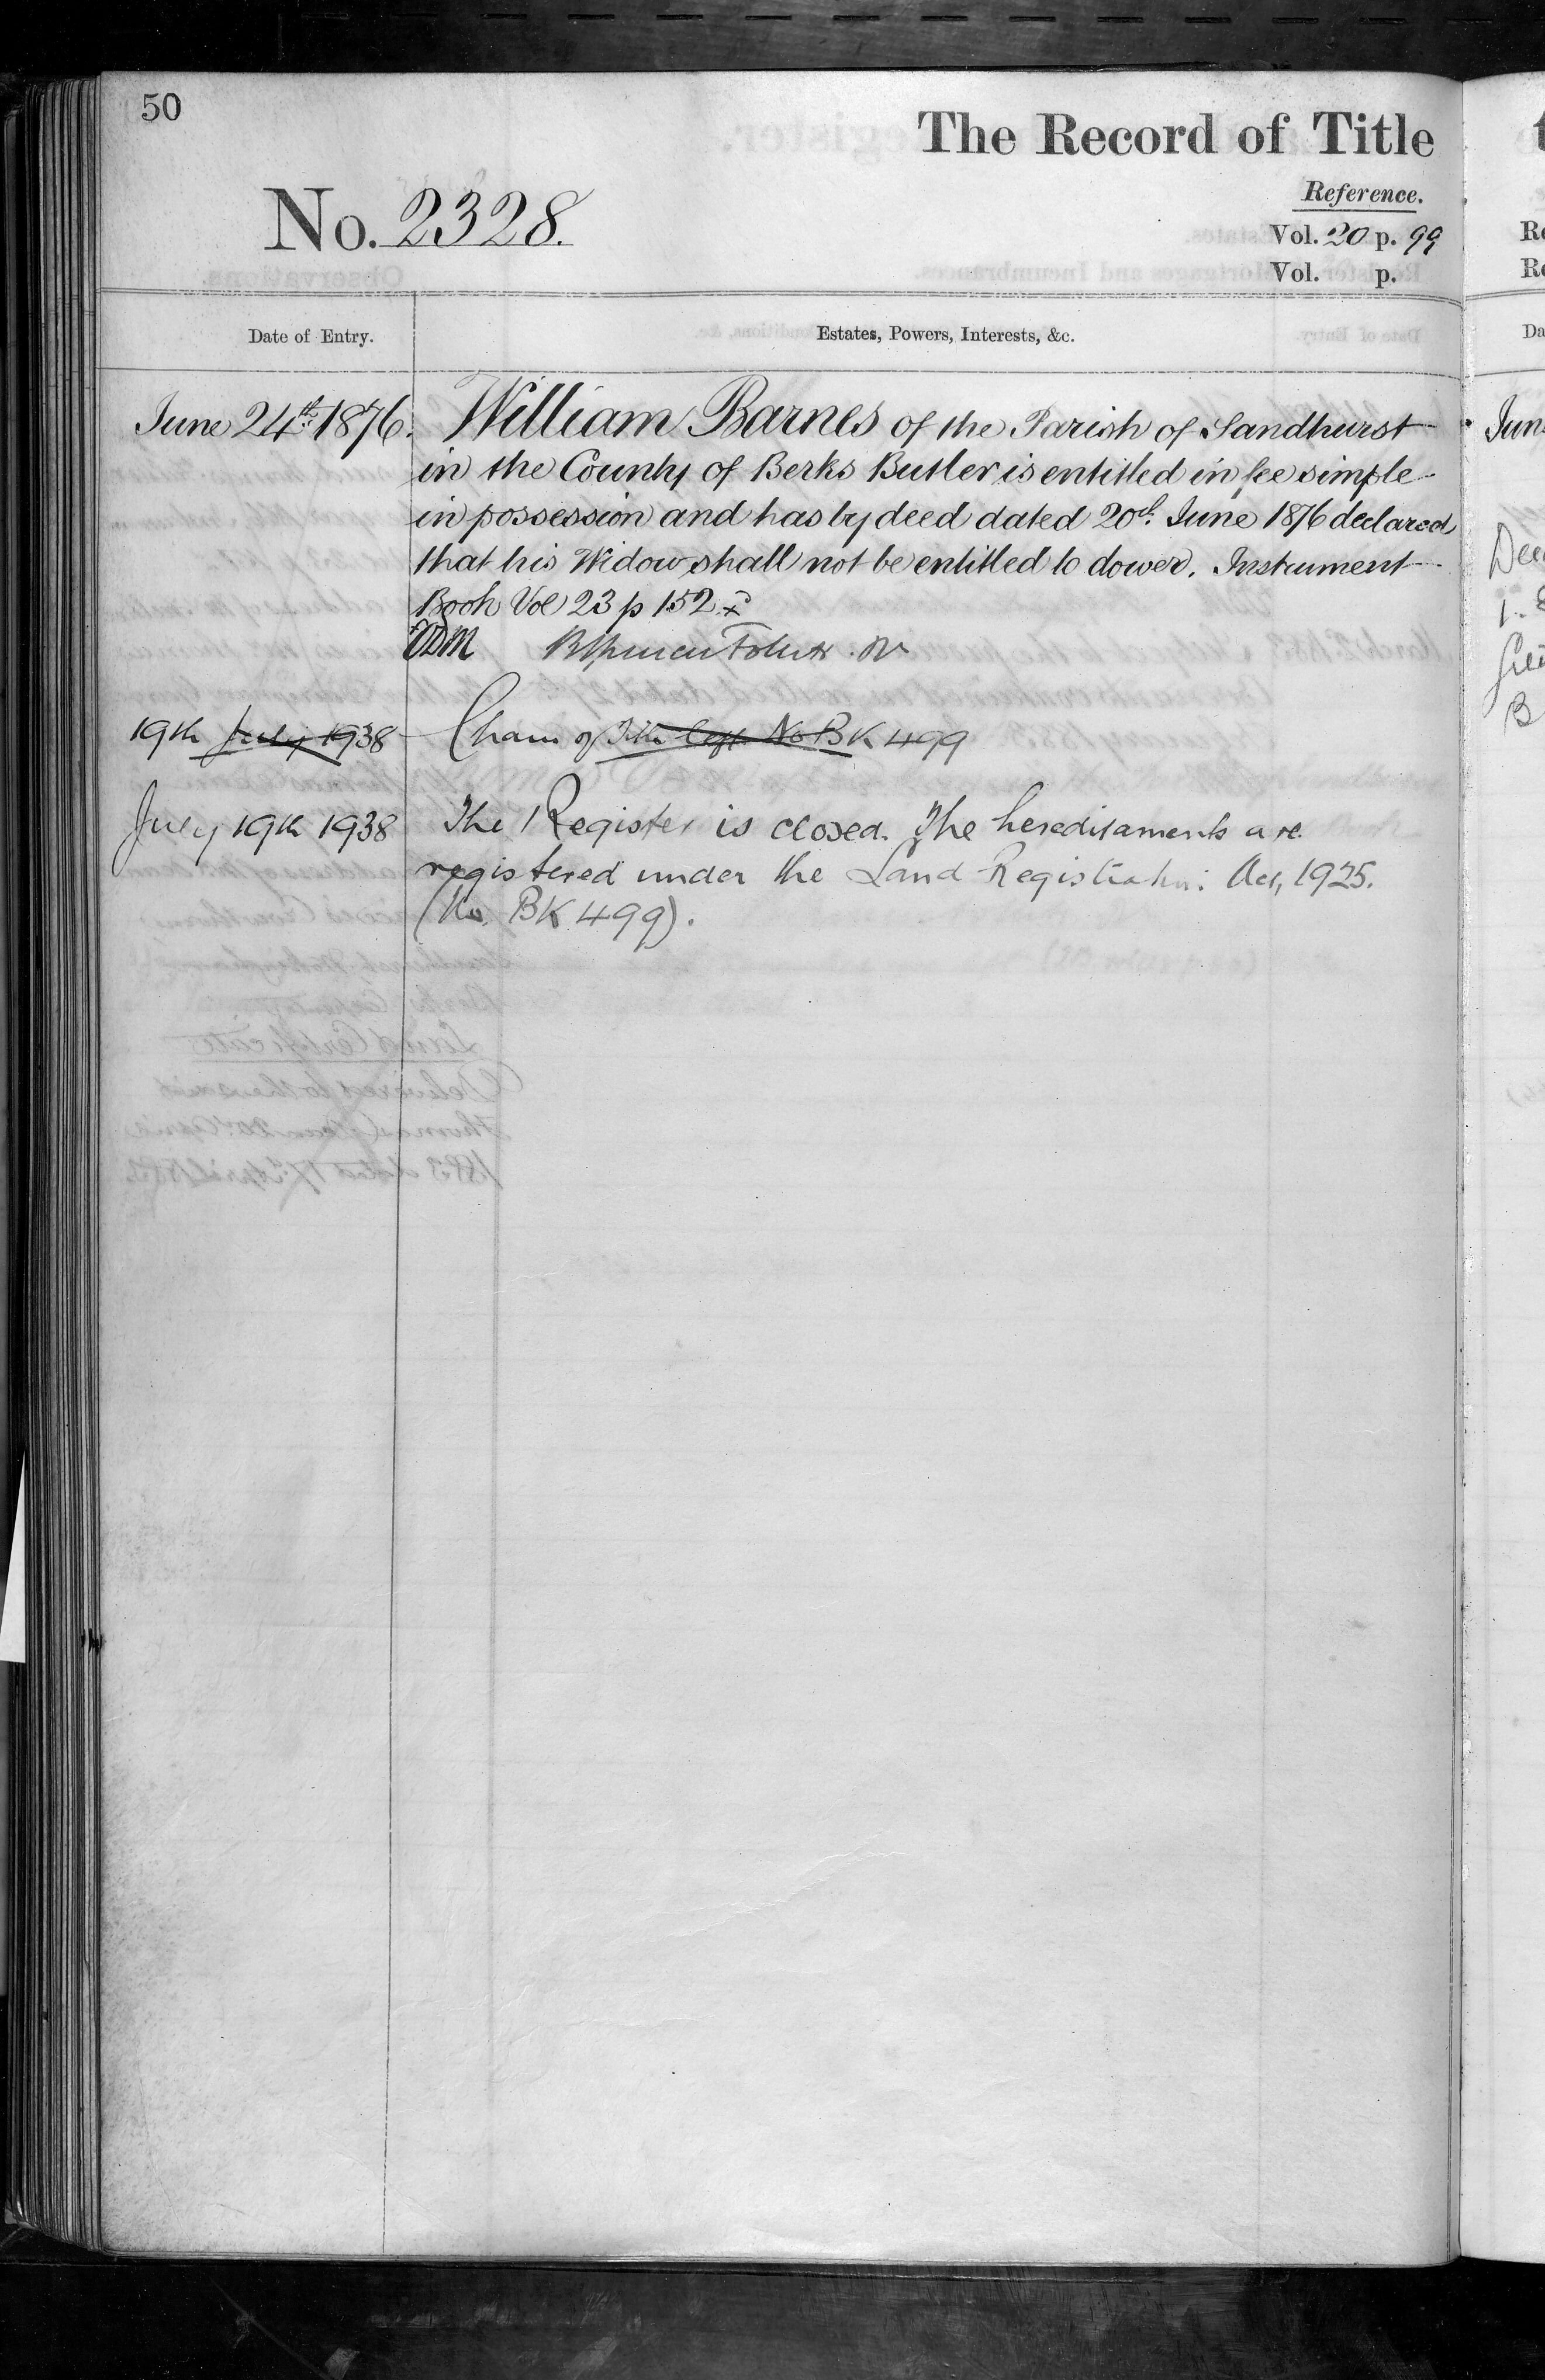 50
The Record of Title
Reference.
No. 2328.
Vol. 20 p. 99
Vol. p.
Date of Entry.
Estates, Powers, Interests, &c.
June 24th 1876. William Barnes of the Parish of Sandhurst
in the County of Berks Butler is entitled in fee simple
in possession and has by deed dated 20th June 1876 declared
that his Widow shall not be entitled to dower. Instrument
Book Vol 23 p 152
19th July 1938 of Title No BK 499
July 19th 1938 The Register is closed. The hereditaments are
registered under the Land Registration Act, 1925.
(No. BK 499).